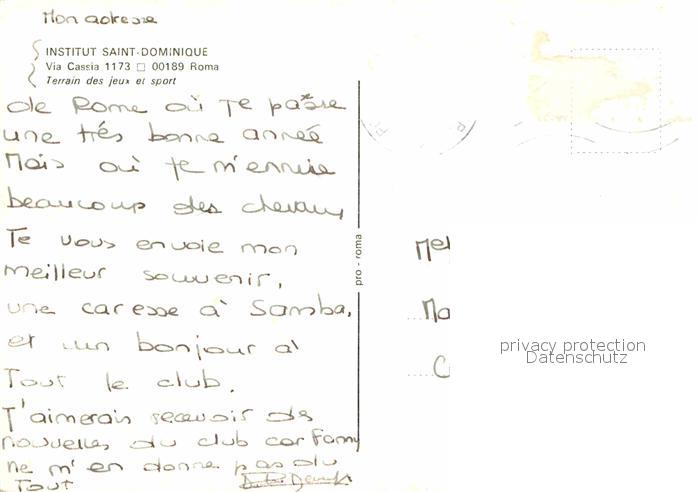 Mon adresse
INSTITUT SAINT-DOMINIQUE
Via Cassia 1173 □ 00189 Roma
Terrain des jeux et sport
de Rome où je passe
une très bonne année
Mais où je m'ennuie
beaucoup des chevaux
Je vous envoie mon
meilleur souvenir,
une caresse à Samba,
et un bonjour à
Tout le club.
J'aimerais recevoir des
nouvelles du club car Fanny
ne m'en donne pas du
Tout
pro - roma
Mel
Ma
C
privacy protection
Datenschutz